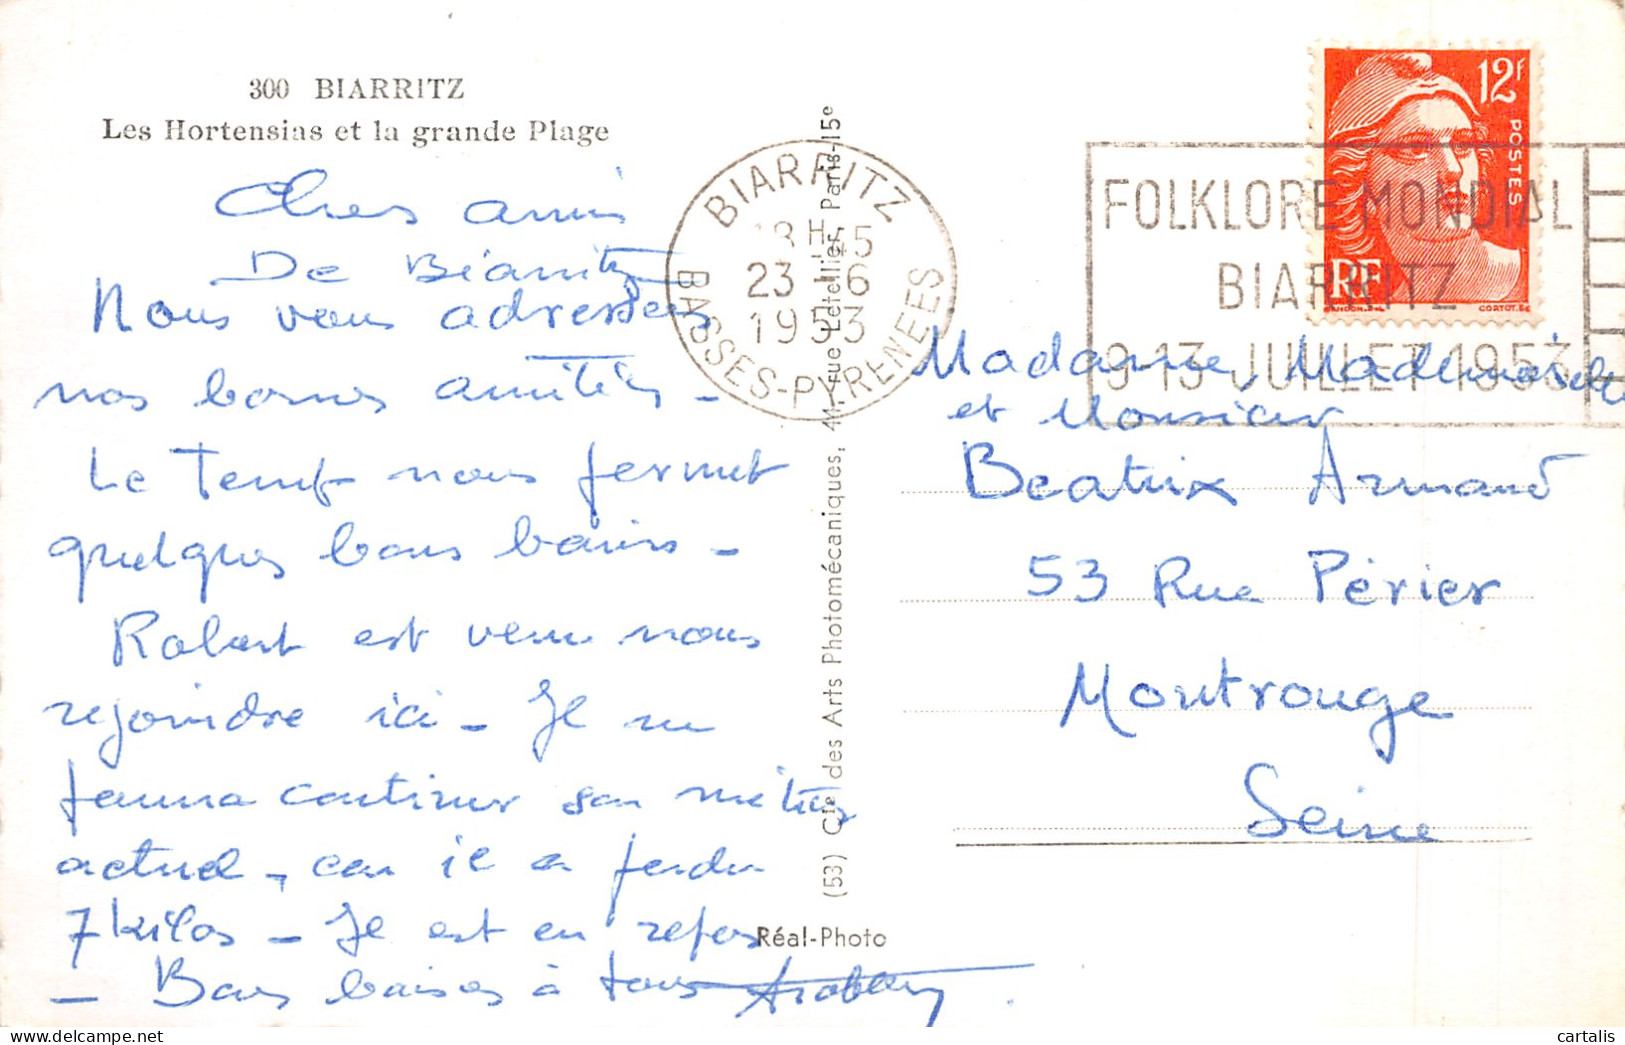 300 BIARRITZ
Les Hortensias et la grande Plage
Chers amis
De Biarritz
Nous vous adressons
nos bonnes amitiés -
Le Temps nous permet
quelques bons bains -
Robert est venu nous
rejoindre ici - Il ne
pourra continuer son métier
actuel, car il a perdu
7 kilos - Il est en repos
- Bons baisers à tous
BIARRITZ
18H45
23-6
1953
BASSES-PYRENEES
(53) Cie des Arts Photomécaniques, 44, rue Letellier, Paris-15e
Réal-Photo
12F
POSTES
RF
GANDON.DEL
CORTOT.SC
FOLKLORE MONDIAL
BIARRITZ
9-13 JUILLET 1953
Madame, Mademoiselle
et Monsieur
Beatrix Armand
53 Rue Périer
Montrouge
Seine
cartalis